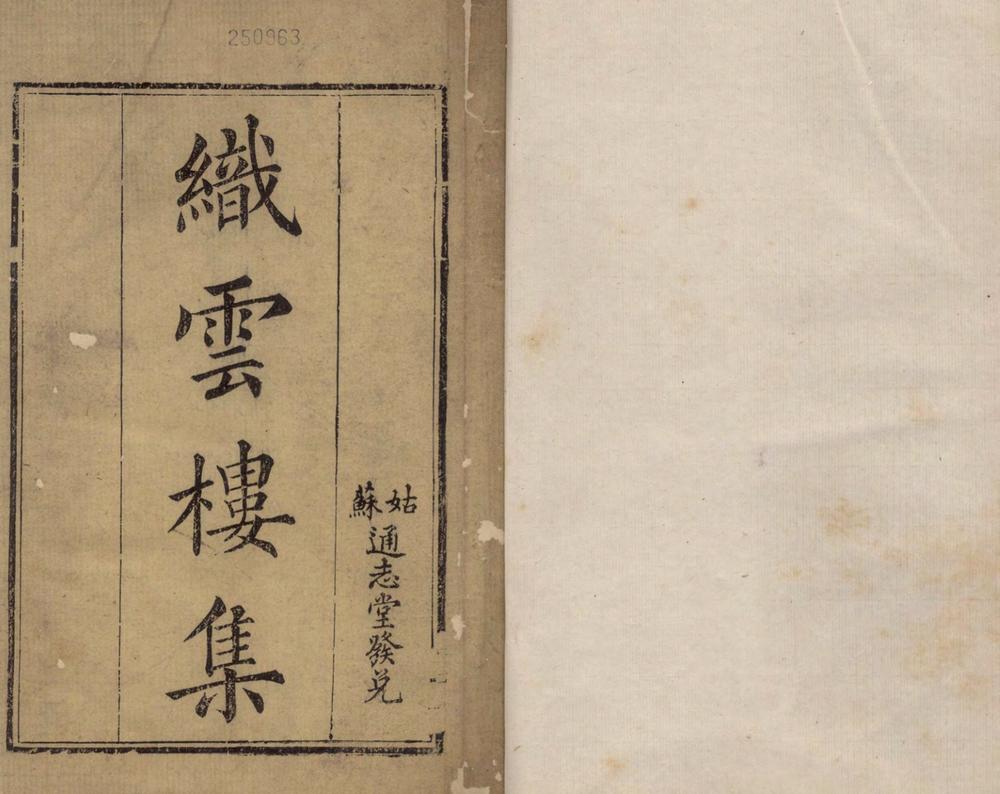 250963
姑蘇通志堂發兌
織雲樓集